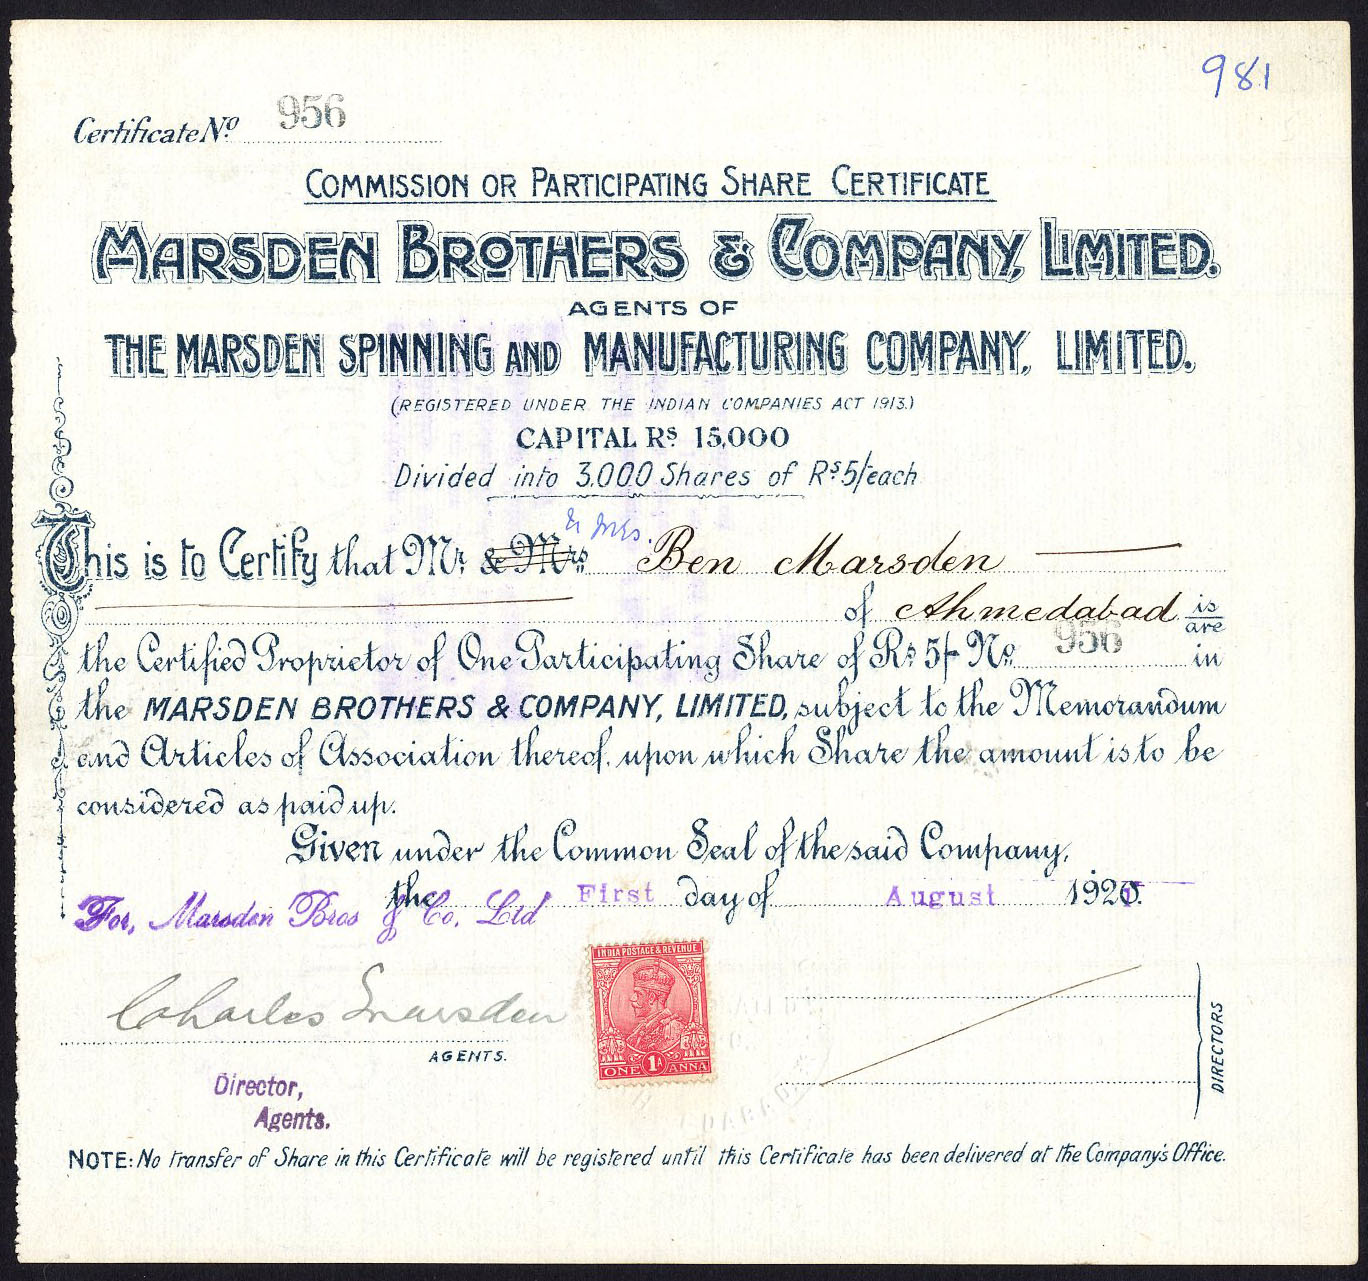 981
Certificate No. 956
COMMISSION OR PARTICIPATING SHARE CERTIFICATE
MARSDEN BROTHERS & COMPANY, LIMITED.
AGENTS OF
THE MARSDEN SPINNING AND MANUFACTURING COMPANY, LIMITED.
(REGISTERED UNDER THE INDIAN COMPANIES ACT 1913.)
CAPITAL RS 15,000
Divided into 3,000 Shares of Rs 5/- each
& Mrs.
This is to Certify that Mr. & Mrs Ben Marsden
of Ahmedabad is/are
the Certified Proprietor of One Participating Share of Rs 5/- No. 956 in
the MARSDEN BROTHERS & COMPANY, LIMITED, subject to the Memorandum
and Articles of Association thereof, upon which Share the amount is to be
considered as paid up.
Given under the Common Seal of the said Company,
the First day of August 192
For, Marsden Bros & Co. Ltd
Charles Marsden
AGENTS.
Director,
Agents.
INDIA POSTAGE & REVENUE
1A
ONE ANNA
DIRECTORS
NOTE: No transfer of Share in this Certificate will be registered until this Certificate has been delivered at the Company's Office.